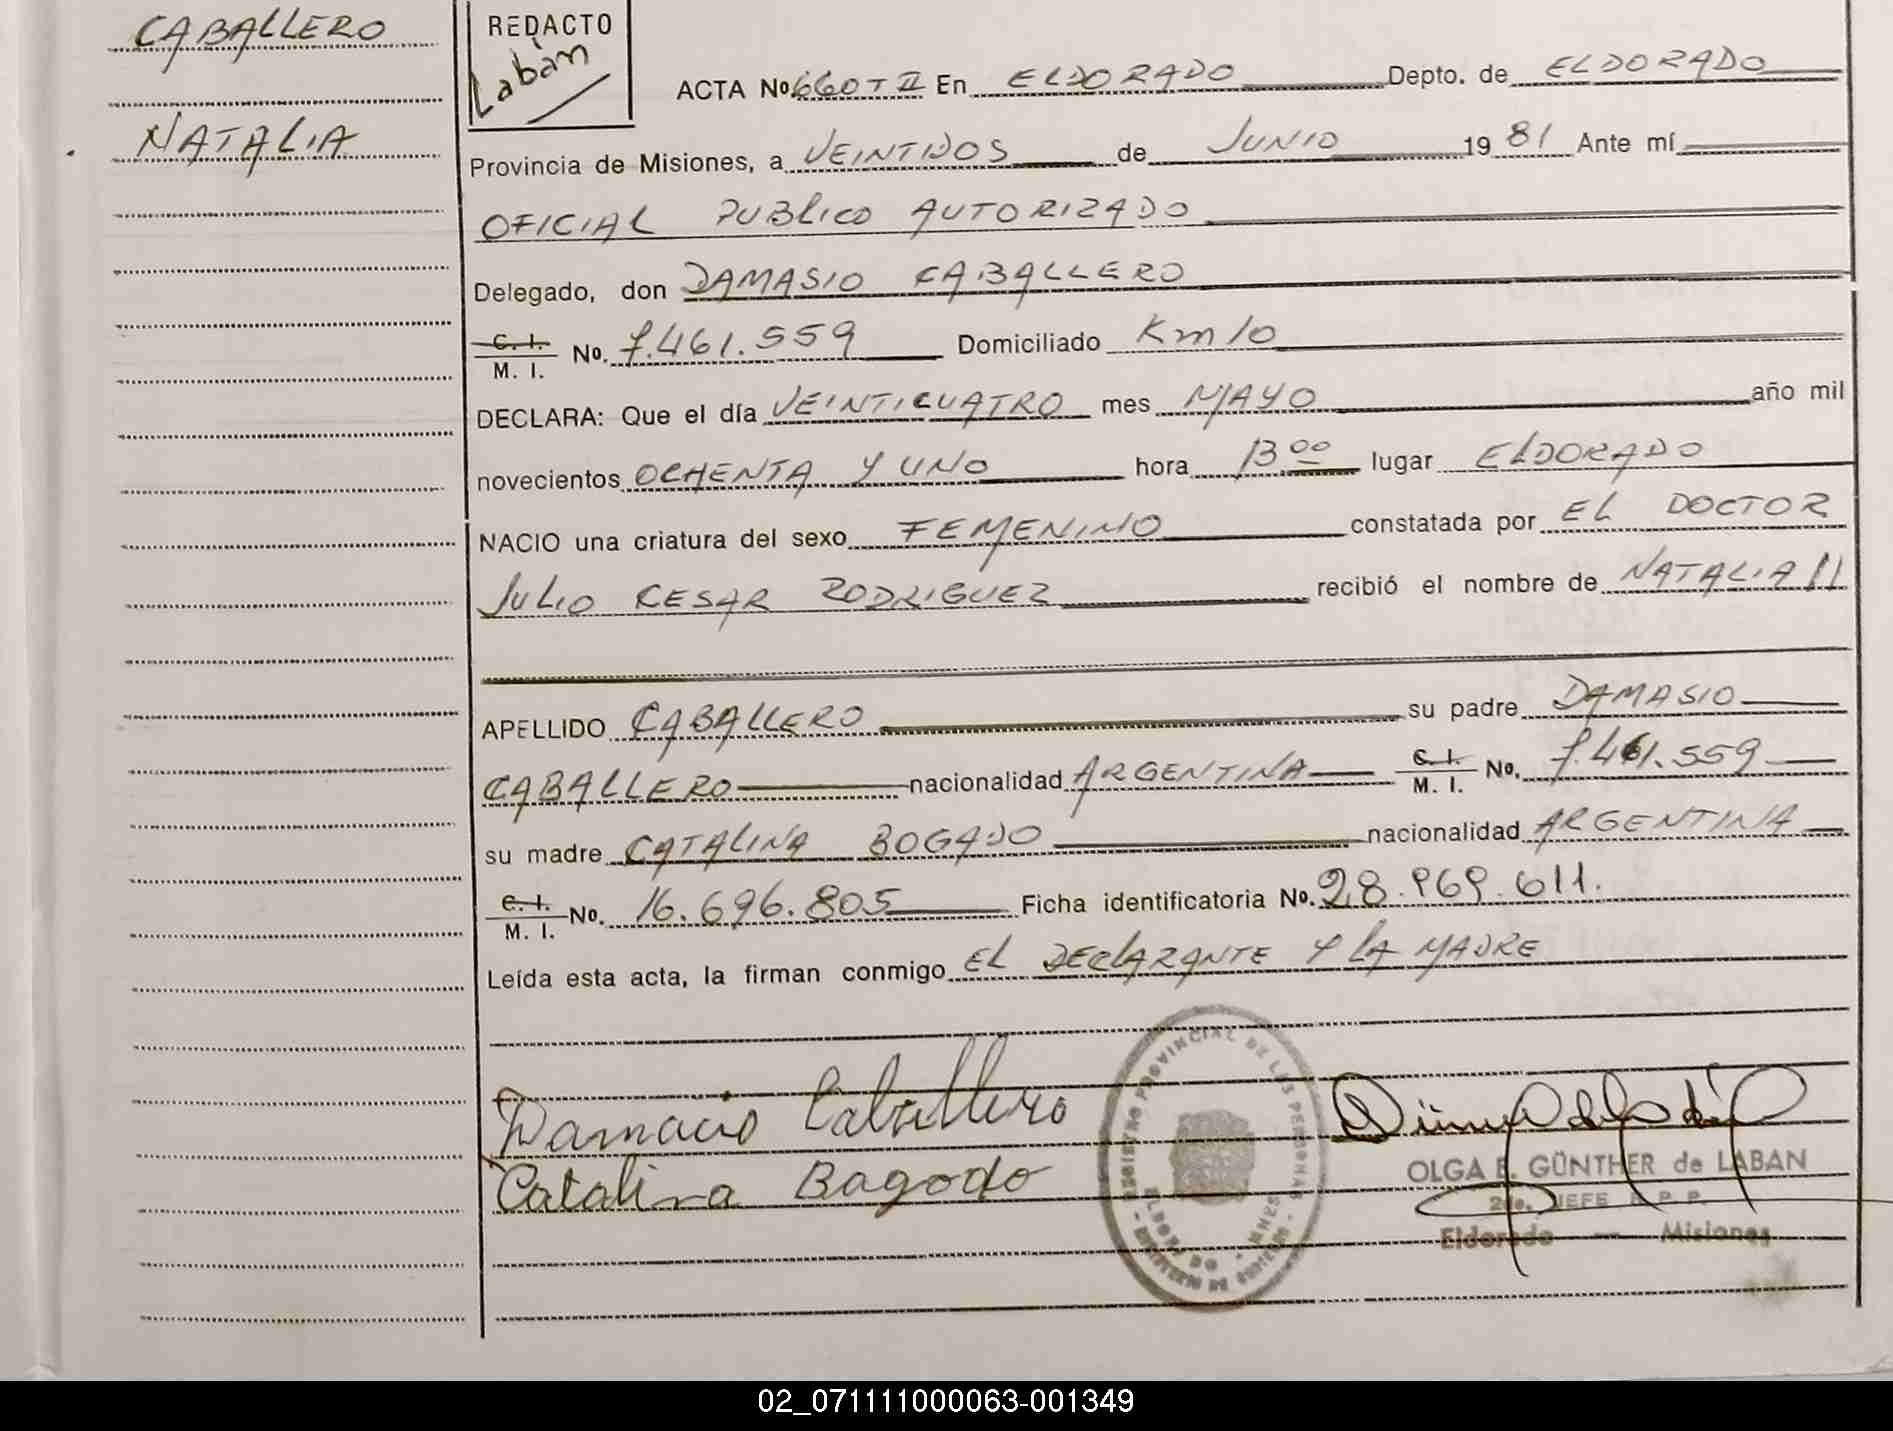 CABALLERO
NATALIA
REDACTO
Labán
ACTA No. 660 T II En ELDORADO Depto. de ELDORADO
Provincia de Misiones, a VEINTIDOS de JUNIO 19 81 Ante mí
OFICIAL PUBLICO AUTORIZADO
Delegado, don DAMASIO CABALLERO
C. I.
M. I. No. 7.461.559 Domiciliado Km 10
DECLARA: Que el día VEINTICUATRO mes MAYO año mil
novecientos OCHENTA Y UNO hora 13.00 lugar ELDORADO
NACIO una criatura del sexo FEMENINO constatada por EL DOCTOR
JULIO CESAR RODRIGUEZ recibió el nombre de NATALIA //
APELLIDO CABALLERO su padre DAMASIO
CABALLERO nacionalidad ARGENTINA C. I. M. I. No. 7.461.559
su madre CATALINA BOGADO nacionalidad ARGENTINA
C. I.
M. I. No. 16.696.805 Ficha identificatoria No. 28.969.611.
Leída esta acta, la firman conmigo EL DECLARANTE Y LA MADRE
Damacio Caballero
Catalina Bagodo
REGISTRO PROVINCIAL DE LAS PERSONAS
ELDORADO MNES
MINISTERIO DE GOBIERNO
OLGA E. GÜNTHER de LABAN
2do. JEFE R. P. P.
Eldorado — Misiones
02_071111000063-001349